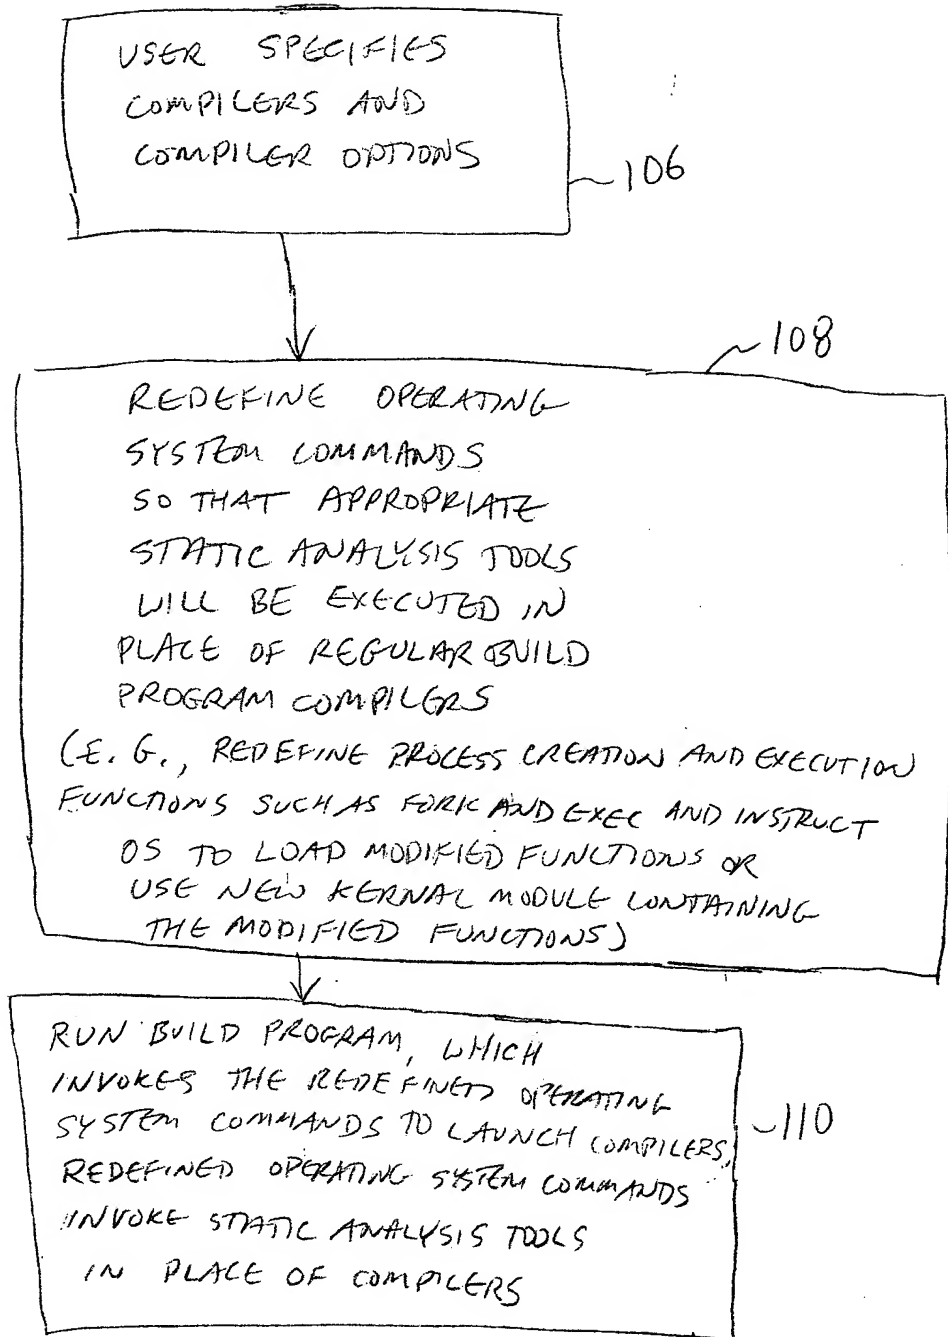 USER SPECIFIES
COMPILERS AND
COMPILER OPTIONS
106
108
REDEFINE OPERATING
SYSTEM COMMANDS
SO THAT APPROPRIATE
STATIC ANALYSIS TOOLS
WILL BE EXECUTED IN
PLACE OF REGULAR BUILD
PROGRAM COMPILERS
(E.G., REDEFINE PROCESS CREATION AND EXECUTION
FUNCTIONS SUCH AS FORK AND EXEC AND INSTRUCT
OS TO LOAD MODIFIED FUNCTIONS OR
USE NEW KERNAL MODULE CONTAINING
THE MODIFIED FUNCTIONS)
RUN BUILD PROGRAM, WHICH
INVOKES THE REDEFINED OPERATING
SYSTEM COMMANDS TO LAUNCH COMPILERS,
REDEFINED OPERATING SYSTEM COMMANDS
INVOKE STATIC ANALYSIS TOOLS
IN PLACE OF COMPILERS
110